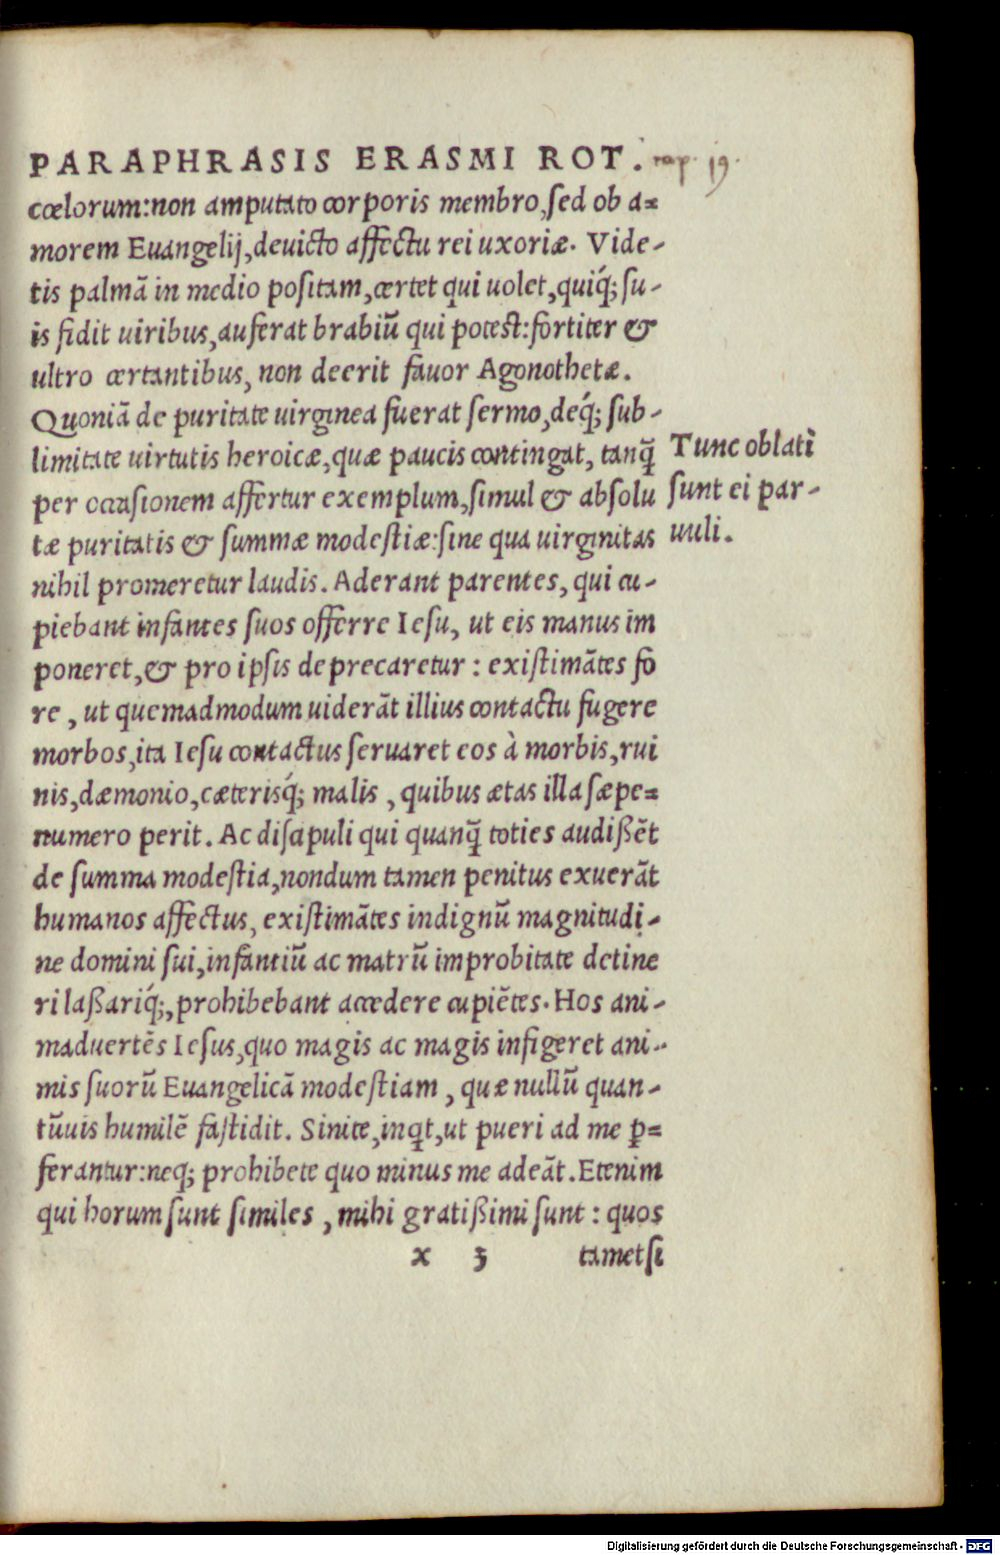 PARAPHRASIS ERASMI ROT. cap. 19.
cœlorum:non amputato corporis membro,sed ob a=
morem Euangelij,deuicto affectu rei uxoriæ. Vide-
tis palmã in medio positam,certet qui uolet,quiq́; su-
is fidit uiribus,auferat brabiũ qui potest:fortiter &
ultro certantibus, non deerit fauor Agonothetæ.
Quoniã de puritate uirginea fuerat sermo,deq́; sub-
limitate uirtutis heroicæ,quæ paucis contingat, tanq̃
per occasionem affertur exemplum,simul & absolu
tæ puritatis & summæ modestiæ:sine qua uirginitas
nihil promeretur laudis. Aderant parentes, qui cu-
piebant infantes suos offerre Iesu, ut eis manus im
poneret,& pro ipsis deprecaretur : existimãtes fo
re , ut quemadmodum uiderãt illius contactu fugere
morbos,ita Iesu contactus seruaret eos à morbis,rui
nis,dæmonio,cæterisq́; malis , quibus ætas illa sæpe=
numero perit. Ac discipuli qui quanq̃ toties audißẽt
de summa modestia,nondum tamen penitus exuerãt
humanos affectus, existimãtes indignũ magnitudi-
ne domini sui,infantiũ ac matrũ improbitate detine
ri laßariq́;,prohibebant accedere cupiẽtes. Hos ani-
maduertẽs Iesus,quo magis ac magis infigeret ani-
mis suorũ Euangelicã modestiam , quæ nullũ quan-
tũuis humilẽ fastidit. Sinite,inq̃t,ut pueri ad me ꝑ=
ferantur:neq; prohibete quo minus me adeãt. Etenim
qui horum sunt similes , mihi gratißimi sunt : quos
x 3 tametsi
Tunc oblati
sunt ei par-
uuli.
Digitalisierung gefördert durch die Deutsche Forschungsgemeinschaft - DFG